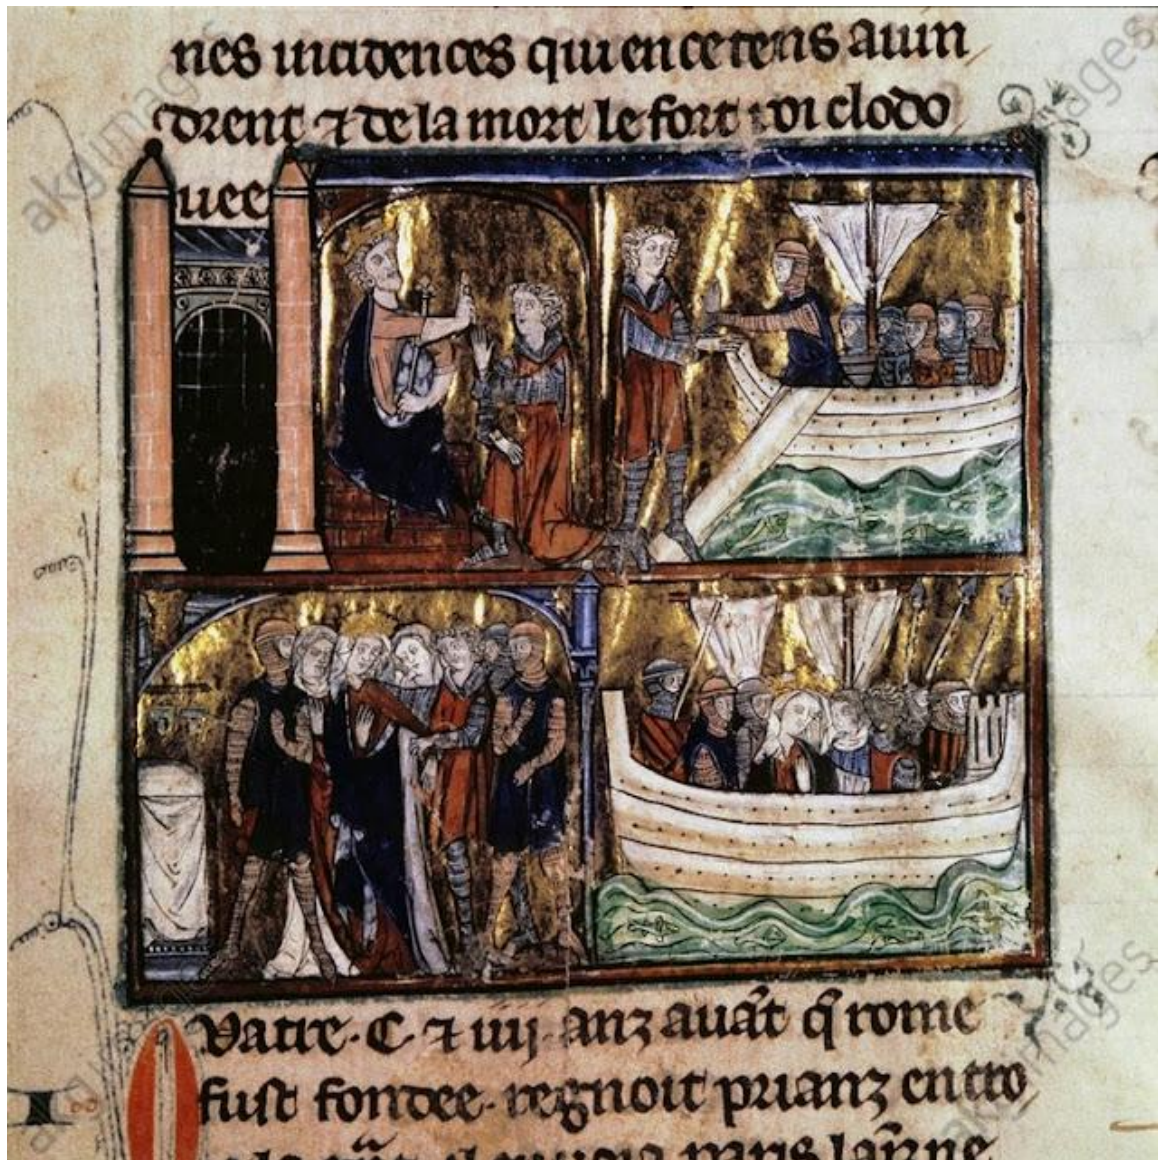 nes incidences qui en ce tens auin
drent ⁊ de la mort le fort roi clodo
uee
Vatre · C · ⁊ iiij · anz auāt q̄ rome
fust fondee · regnoit prianz en tro
paris
akg images